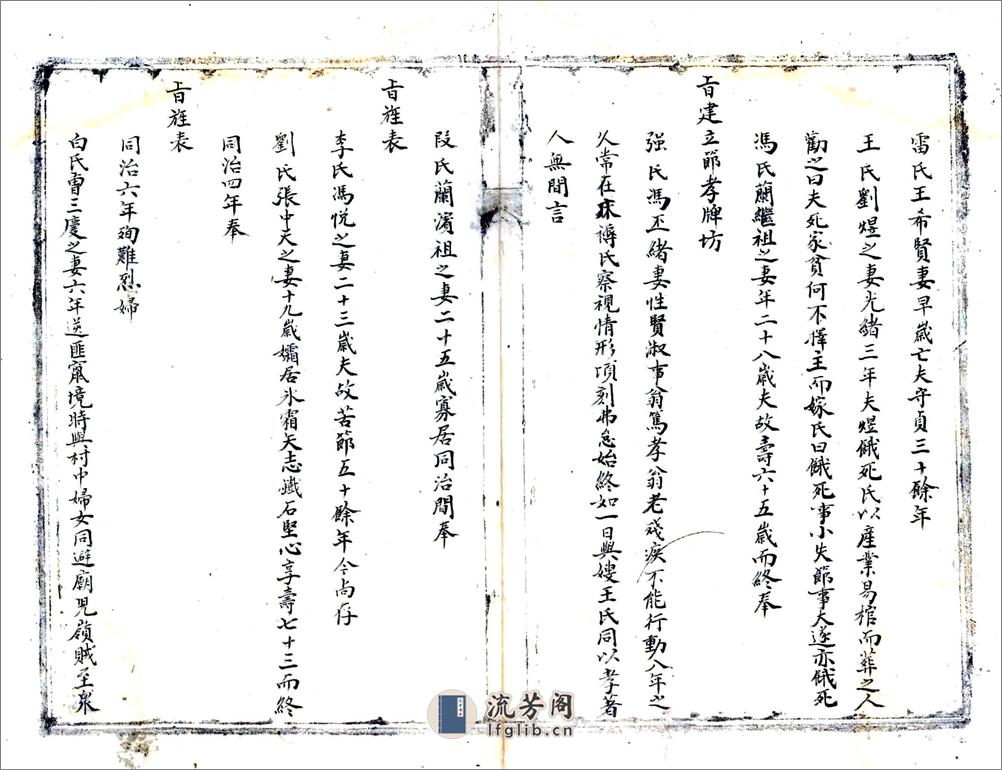 雷氏王希賢妻早歲亡夫守貞三十餘年
王氏劉煜之妻光緒三年夫煜餓死氏以產業易棺而葬之人
勸之曰夫死家貧何不擇主而嫁氏曰餓死事小失節事大遂亦餓死
馮氏蘭繼祖之妻年二十八歲夫故壽六十五歲而終奉
旨建立節孝牌坊
强氏馮丕緒妻性賢淑事翁篤孝翁老殘疾不能行動八年之
久常在牀褥氏察視情形項刻弗怠始終如一日與嫂王氏同以孝著
人無間言
段氏蘭濱祖之妻二十五歲寡居同治間奉
旨旌表
李氏馮悅之妻二十三歲夫故苦節五十餘年今尚存
劉氏張中天之妻十九歲孀居氷霜矢志鐵石堅心享壽七十三而終
同治四年奉
旨旌表
同治六年殉難烈婦
白氏曹三慶之妻六年送匪竄境時與村中婦女同避廟兒嶺賊至衆
流芳阁
lfglib.cn